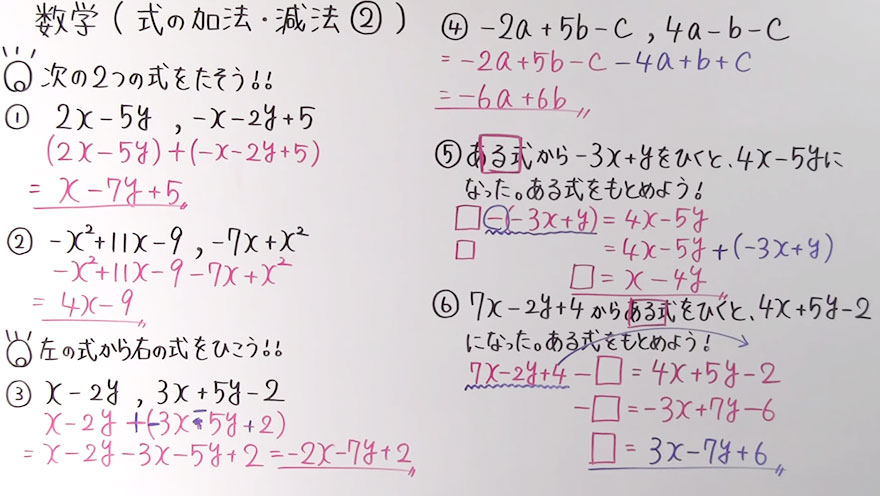 数学(式の加法・減法②)
次の2つの式をたそう!!
① 2x-5y , -x-2y+5
(2x-5y)+(-x-2y+5)
= x-7y+5
② -x²+11x-9 , -7x+x²
-x²+11x-9-7x+x²
= 4x-9
左の式から右の式をひこう!!
③ x-2y , 3x+5y-2
x-2y+(-3x-5y+2)
= x-2y-3x-5y+2=-2x-7y+2
④ -2a+5b-c , 4a-b-c
= -2a+5b-c-4a+b+c
= -6a+6b
⑤ある式から-3x+yをひくと、4x-5yに
なった。ある式をもとめよう!
□-(-3x+y)=4x-5y
□ =4x-5y+(-3x+y)
□=x-4y
⑥ 7x-2y+4からある式をひくと、4x+5y-2
になった。ある式をもとめよう!
7x-2y+4-□=4x+5y-2
-□=-3x+7y-6
□=3x-7y+6